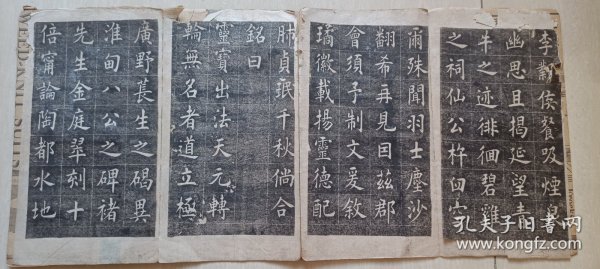 李勣侯餐吸煙
幽思且揭延望青
牛之迹徘徊碧雞
之祠仙公杵臼
殊聞羽士塵沙
翻希再見因茲郡
會須予制文爰敘
璚徽載揚靈德配
肺貞珉千秋倘合
銘曰
靈寶出法天元轉
轎無名者道立極
廣野萇生之碣異
淮甸八公之碑褚
先生金庭翠刻十
倍甯論陶都水地
孔夫子旧书网
www.kongfz.com